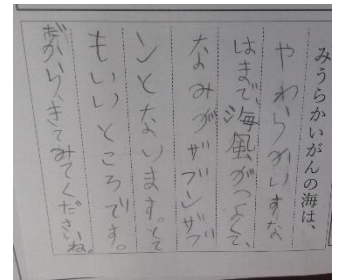 みうらかいがんの海は、
やわらかいすな
はまで、海風がつよくて、
なみがザブンザブ
ンとなります。とて
もいいところです。
きてみてくださいね。